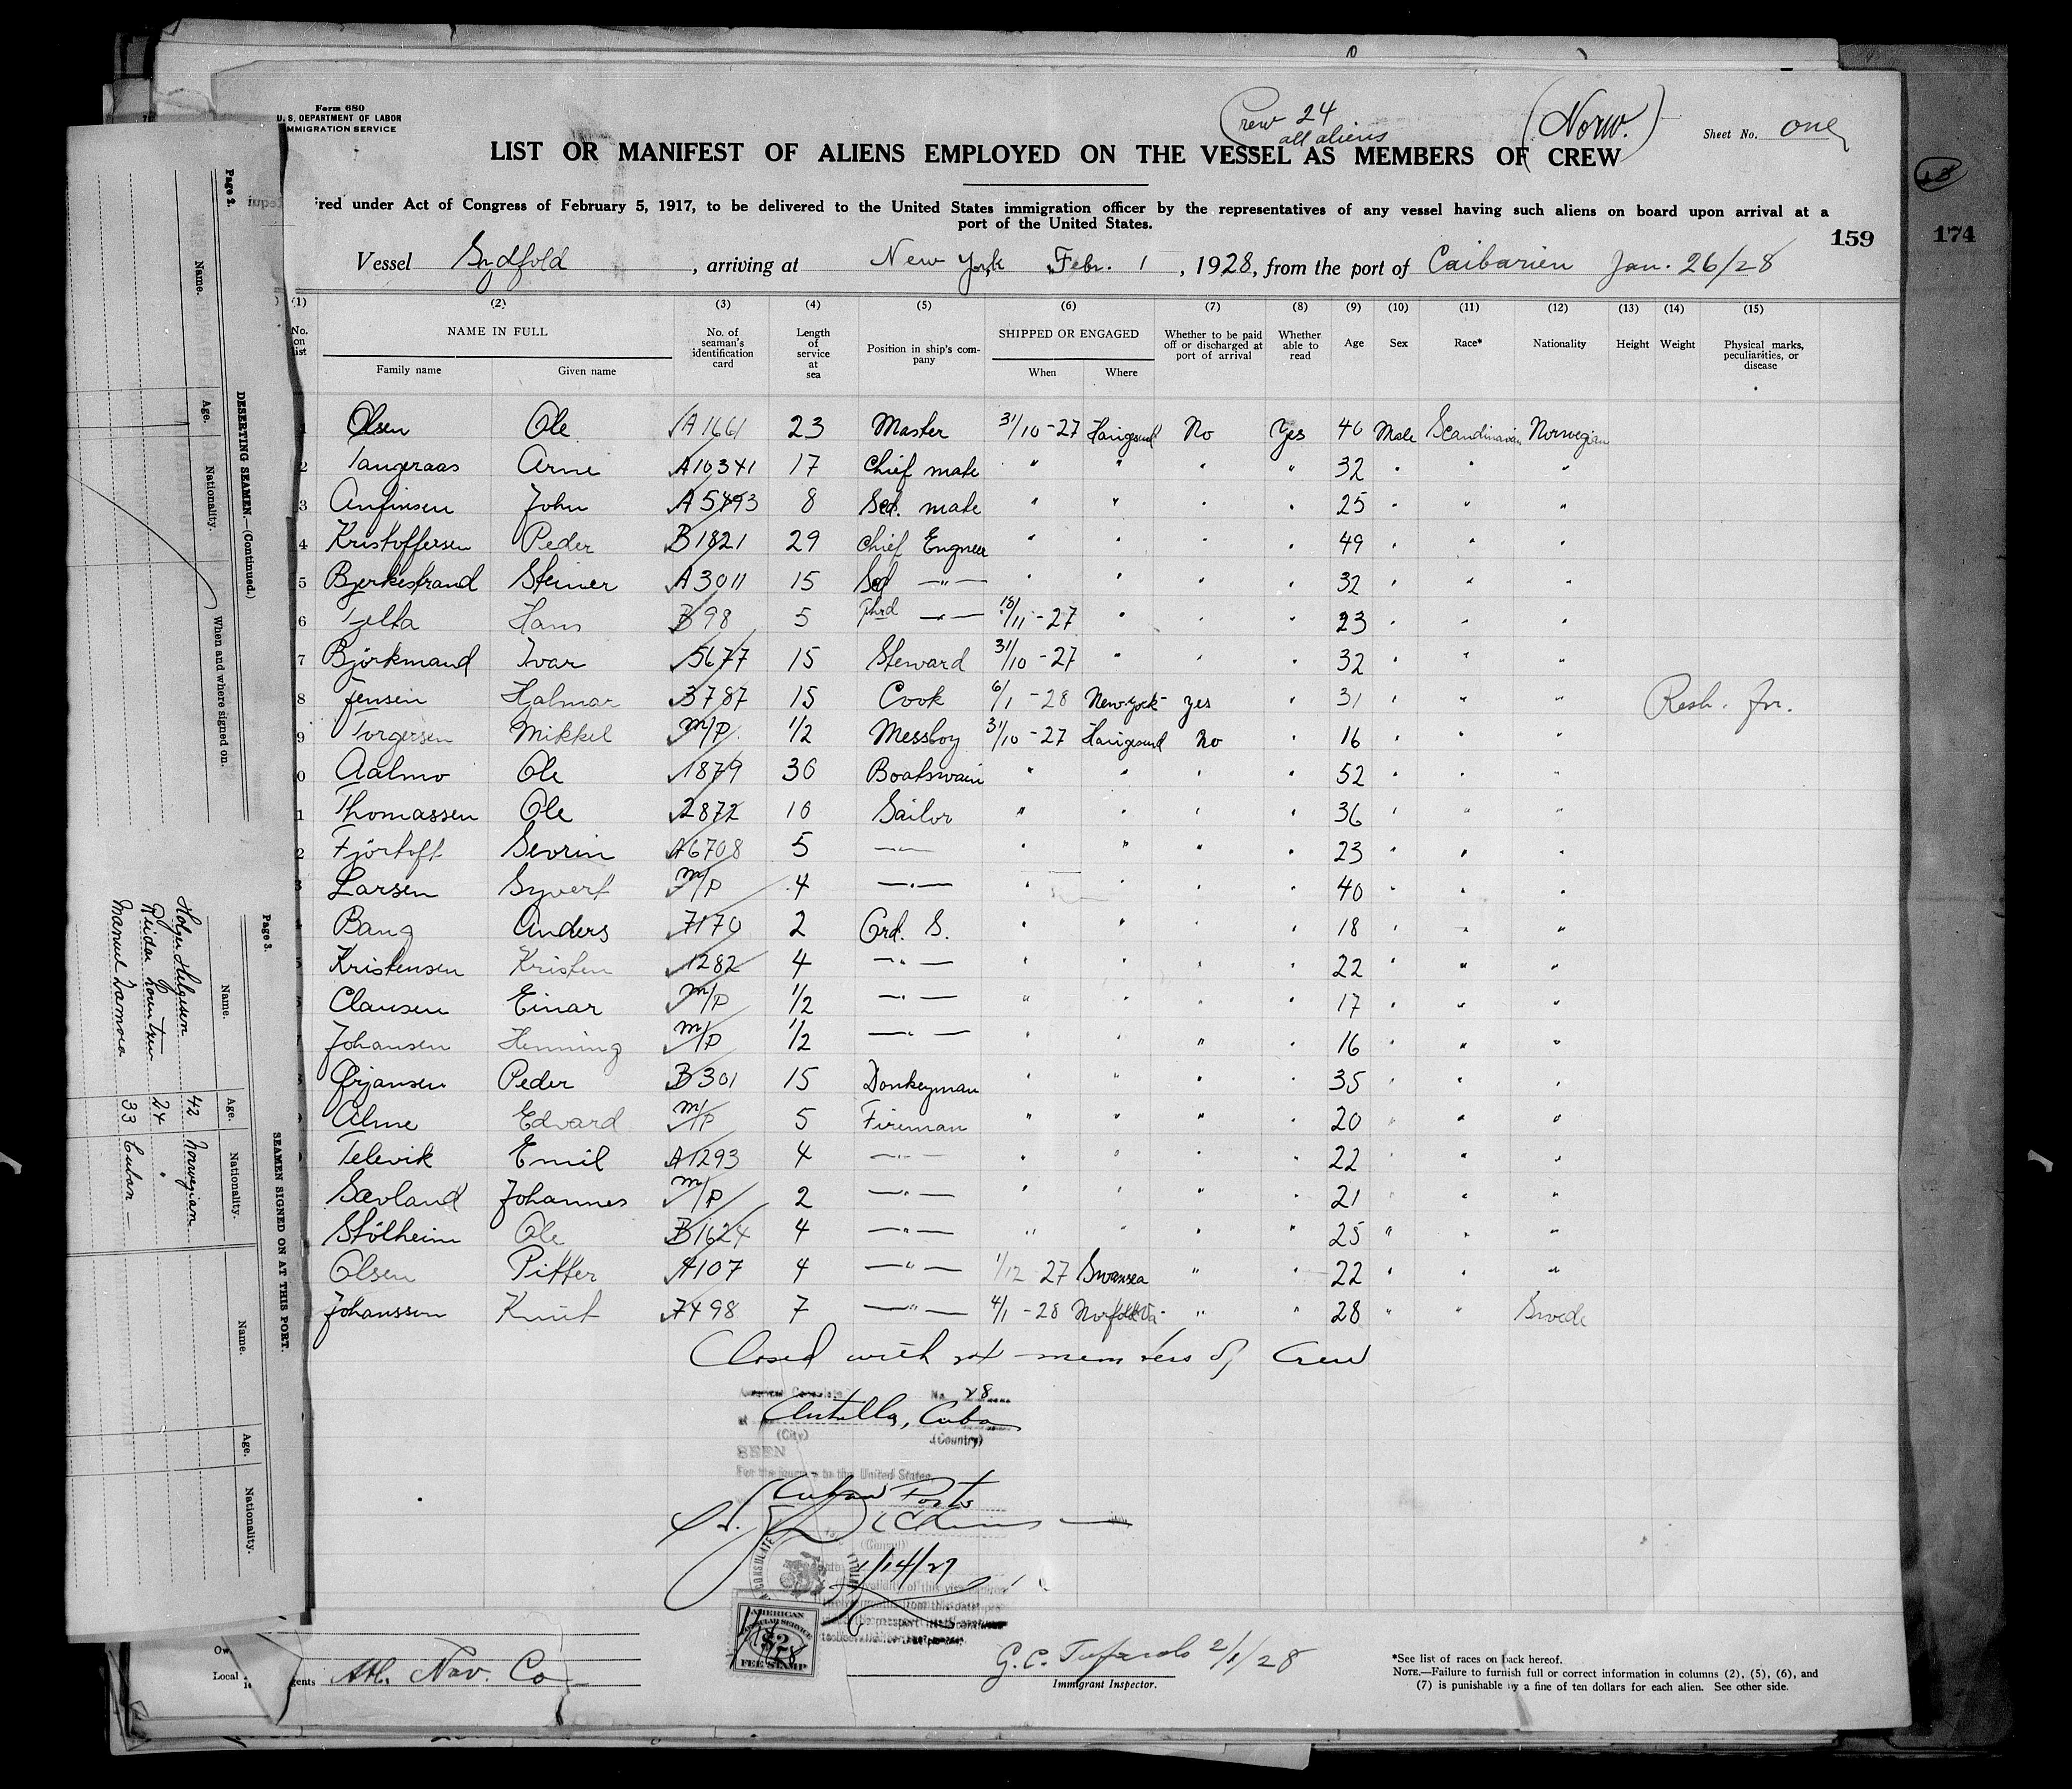 Form 680
U. S. DEPARTMENT OF LABOR
IMMIGRATION SERVICE
Crew 24
all aliens
(Norw.)
Sheet No. one
LIST OR MANIFEST OF ALIENS EMPLOYED ON THE VESSEL AS MEMBERS OF CREW
red under Act of Congress of February 5, 1917, to be delivered to the United States immigration officer by the representatives of any vessel having such aliens on board upon arrival at a
port of the United States.
159
174
Vessel Sydfold, arriving at New York, Febr. 1, 1928, from the port of Caibarien Jan. 26/28
(1) (2) (3) (4) (5) (6) (7) (8) (9) (10) (11) (12) (13) (14) (15)
No. on list NAME IN FULL Family name Given name No. of seaman's identification card Length of service at sea Position in ship's company SHIPPED OR ENGAGED When Where Whether to be paid off or discharged at port of arrival Whether able to read Age Sex Race* Nationality Height Weight Physical marks, peculiarities, or disease
1 Olsen Ole A 1661 23 Master 31/10-27 Haugesund No Yes 40 Male Scandinavian Norwegian
2 Tangeraas Arne A10341 17 Chief mate " " " " 32 " " "
3 Anfinsen John A 5493 8 Scd. mate " " " " 25 " " "
4 Kristoffersen Peder B1821 29 Chief Engneer " " " " 49 " " "
5 Bjerkestrand Steiner A 3011 15 Scd —"— " " " " 32 " " "
6 Tjelta Hans B 98 5 Thrd —"— 18/11-27 " " " 23 " " "
7 Björkmand Ivar 5677 15 Steward 31/10-27 " " " 32 " " "
8 Jensen Halmar B787 15 Cook 6/1-28 New-York yes " 31 " " "
9 Torgersen Mikkel M/P 1/2 Messboy 31/10-27 Haugesund No " 16 " " "
0 Aalmo Ole 1879 36 Boatswain " " " " 52 " " "
1 Thomassen Ole 2872 10 Sailor " " " " 36 " " "
2 Fjörtoft Sevrin A6708 5 —"— " " " " 23 " " "
3 Larsen Syvert M/P 4 —"— " " " " 40 " " "
4 Bang Anders 7170 2 Ord. S. " " " " 18 " " "
5 Kristensen Kristen 1282 4 —"— " " " " 22 " " "
6 Clausen Einar M/P 1/2 —"— " " " " 17 " " "
7 Johansen Henning M/P 1/2 —"— " " " " 16 " " "
8 Ørjansen Peder B301 15 Donkeyman " " " " 35 " " "
9 Alme Edvard M/P 5 Fireman " " " " 20 " " "
0 Televik Emil A1293 4 —"— " " " " 22 " " "
Sævland Johannes M/P 2 —"— " " " " 21 " " "
Stölheim Ole B1624 4 —"— " " " " 25 " " "
Olsen Pitter A107 4 —"— 1/12 27 Swansea " " 22 " " "
Johansson Knut 7498 7 —"— 4/1-28 Norfolk Va " " 28 " " Swede
Closed with 24 members of Crew
American Consulate No. 28
at Antilla, Cuba
(City) (Country)
SEEN
For the journey to the United States
Cuban Ports
(Consul)
1/14/27
AMERICAN
CONSULAR SERVICE
$2
FEE STAMP
Local
gents Atl. Nav. Co
2/1/28
Immigrant Inspector.
*See list of races on back hereof.
NOTE.—Failure to furnish full or correct information in columns (2), (5), (6), and
(7) is punishable by a fine of ten dollars for each alien. See other side.
Page 2.
DESERTING SEAMEN.—(Continued.)
Name. Age. Nationality. When and where signed on.
Page 3.
SEAMEN SIGNED ON AT THIS PORT.
Name. Age. Nationality. Name. Age. Nationality.
Holger Helgesen 42 Norwegian
Reidar Lauritzen 24 "
Manuel Zamora 33 Cuban